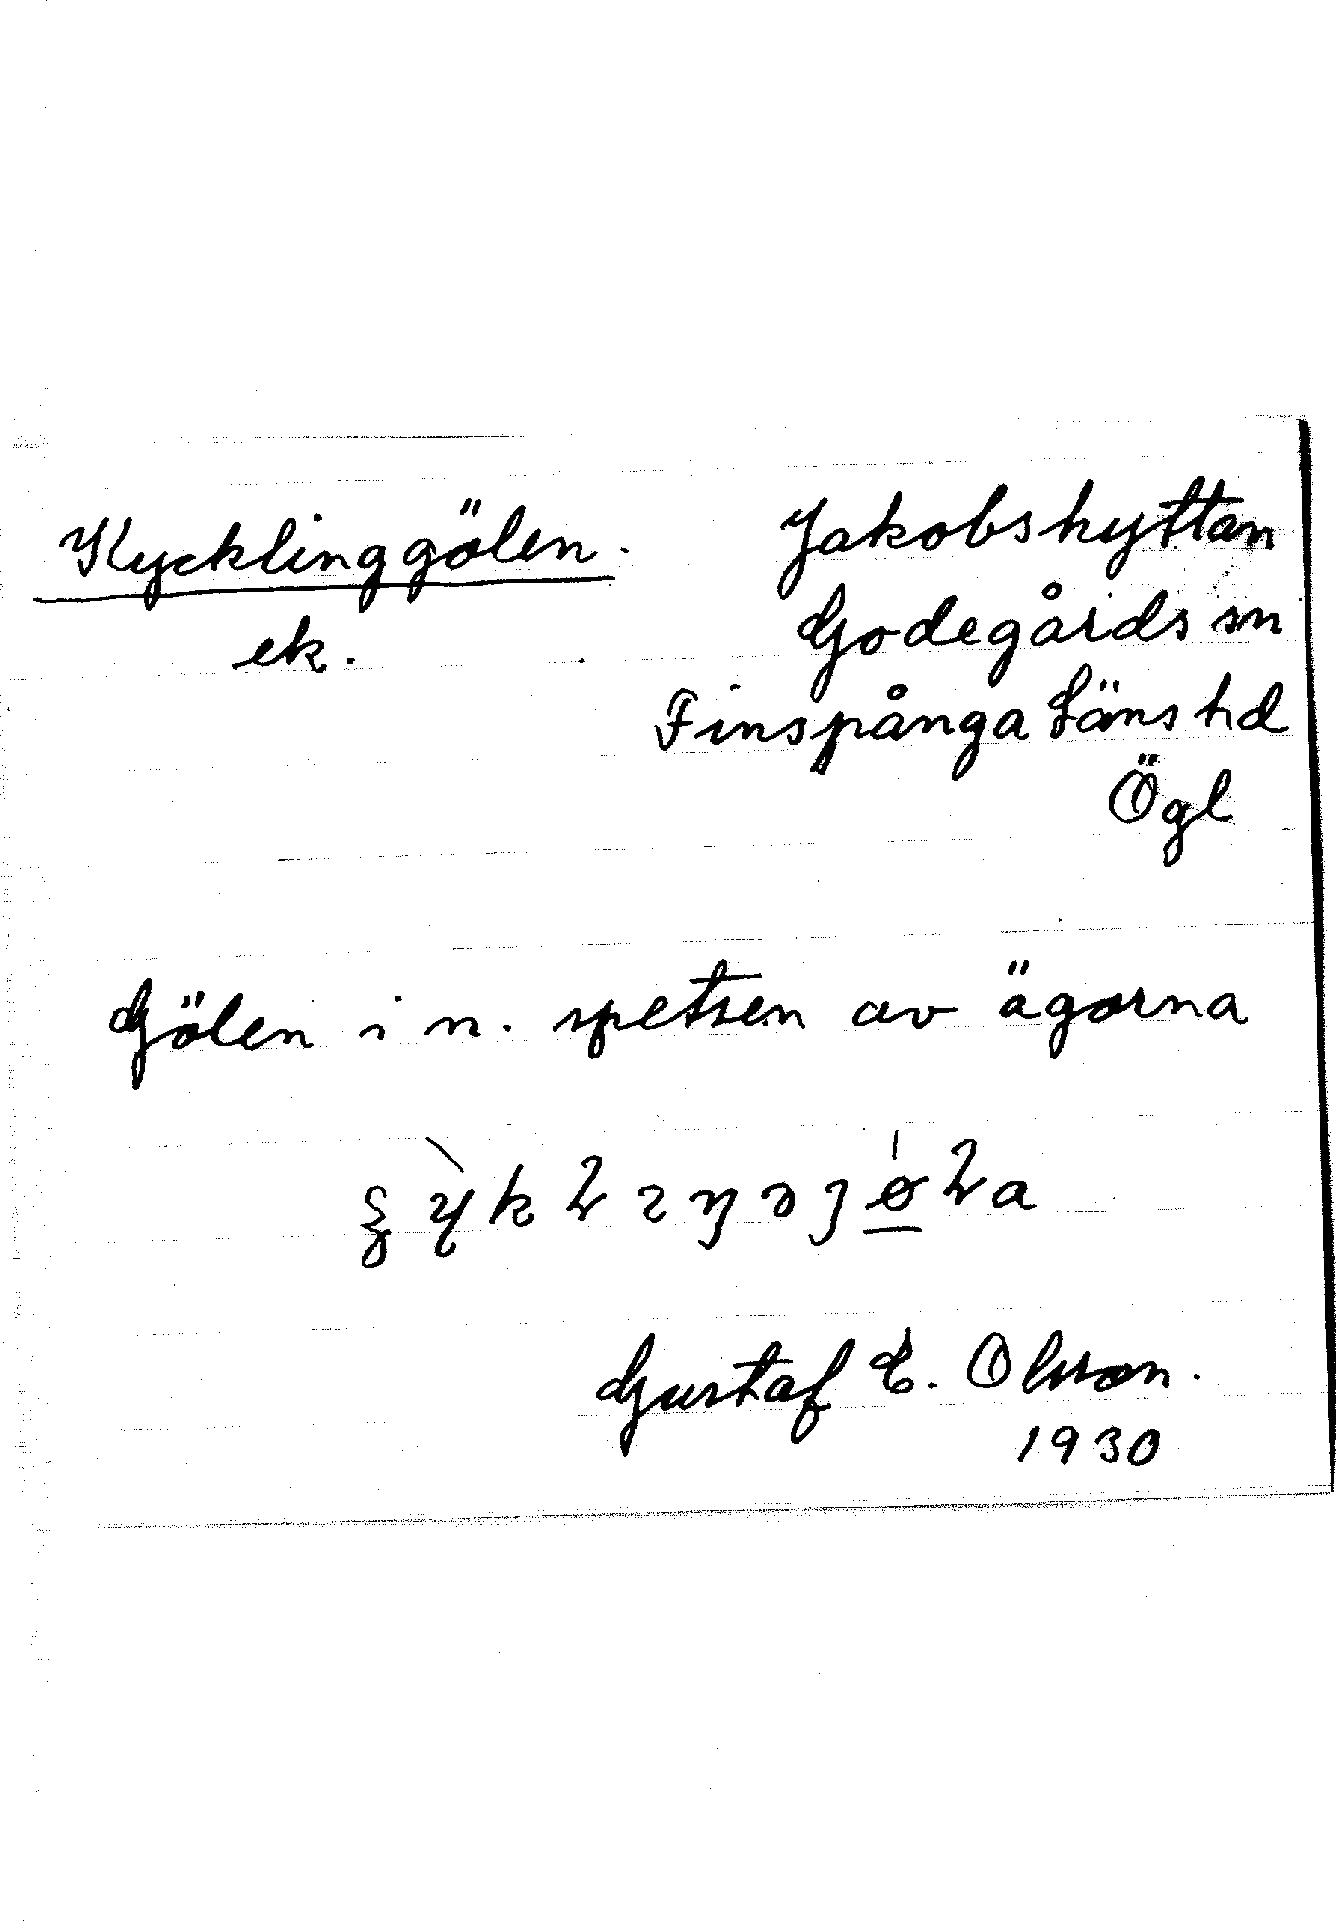 Kycklinggölen.
ek.
Jakobshyttan
Godegårds sn
Finspånga Läns hd
Ögl
Gölen i n. spetsen av ägorna
Gustaf E. Olsson.
1930